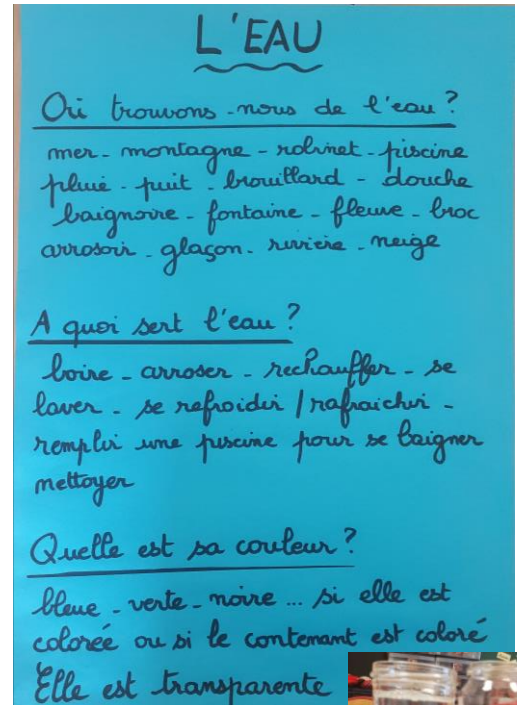 L'EAU
Où trouvons-nous de l'eau ?
mer - montagne - robinet - piscine
pluie - puit - brouillard - douche
baignoire - fontaine - fleuve - broc
arrosoir - glaçon - rivière - neige
A quoi sert l'eau ?
boire - arroser - rechauffer - se
laver - se refroidir / rafraichir -
remplir une piscine pour se baigner
nettoyer
Quelle est sa couleur ?
bleue - verte - noire ... si elle est
colorée ou si le contenant est coloré
Elle est transparente